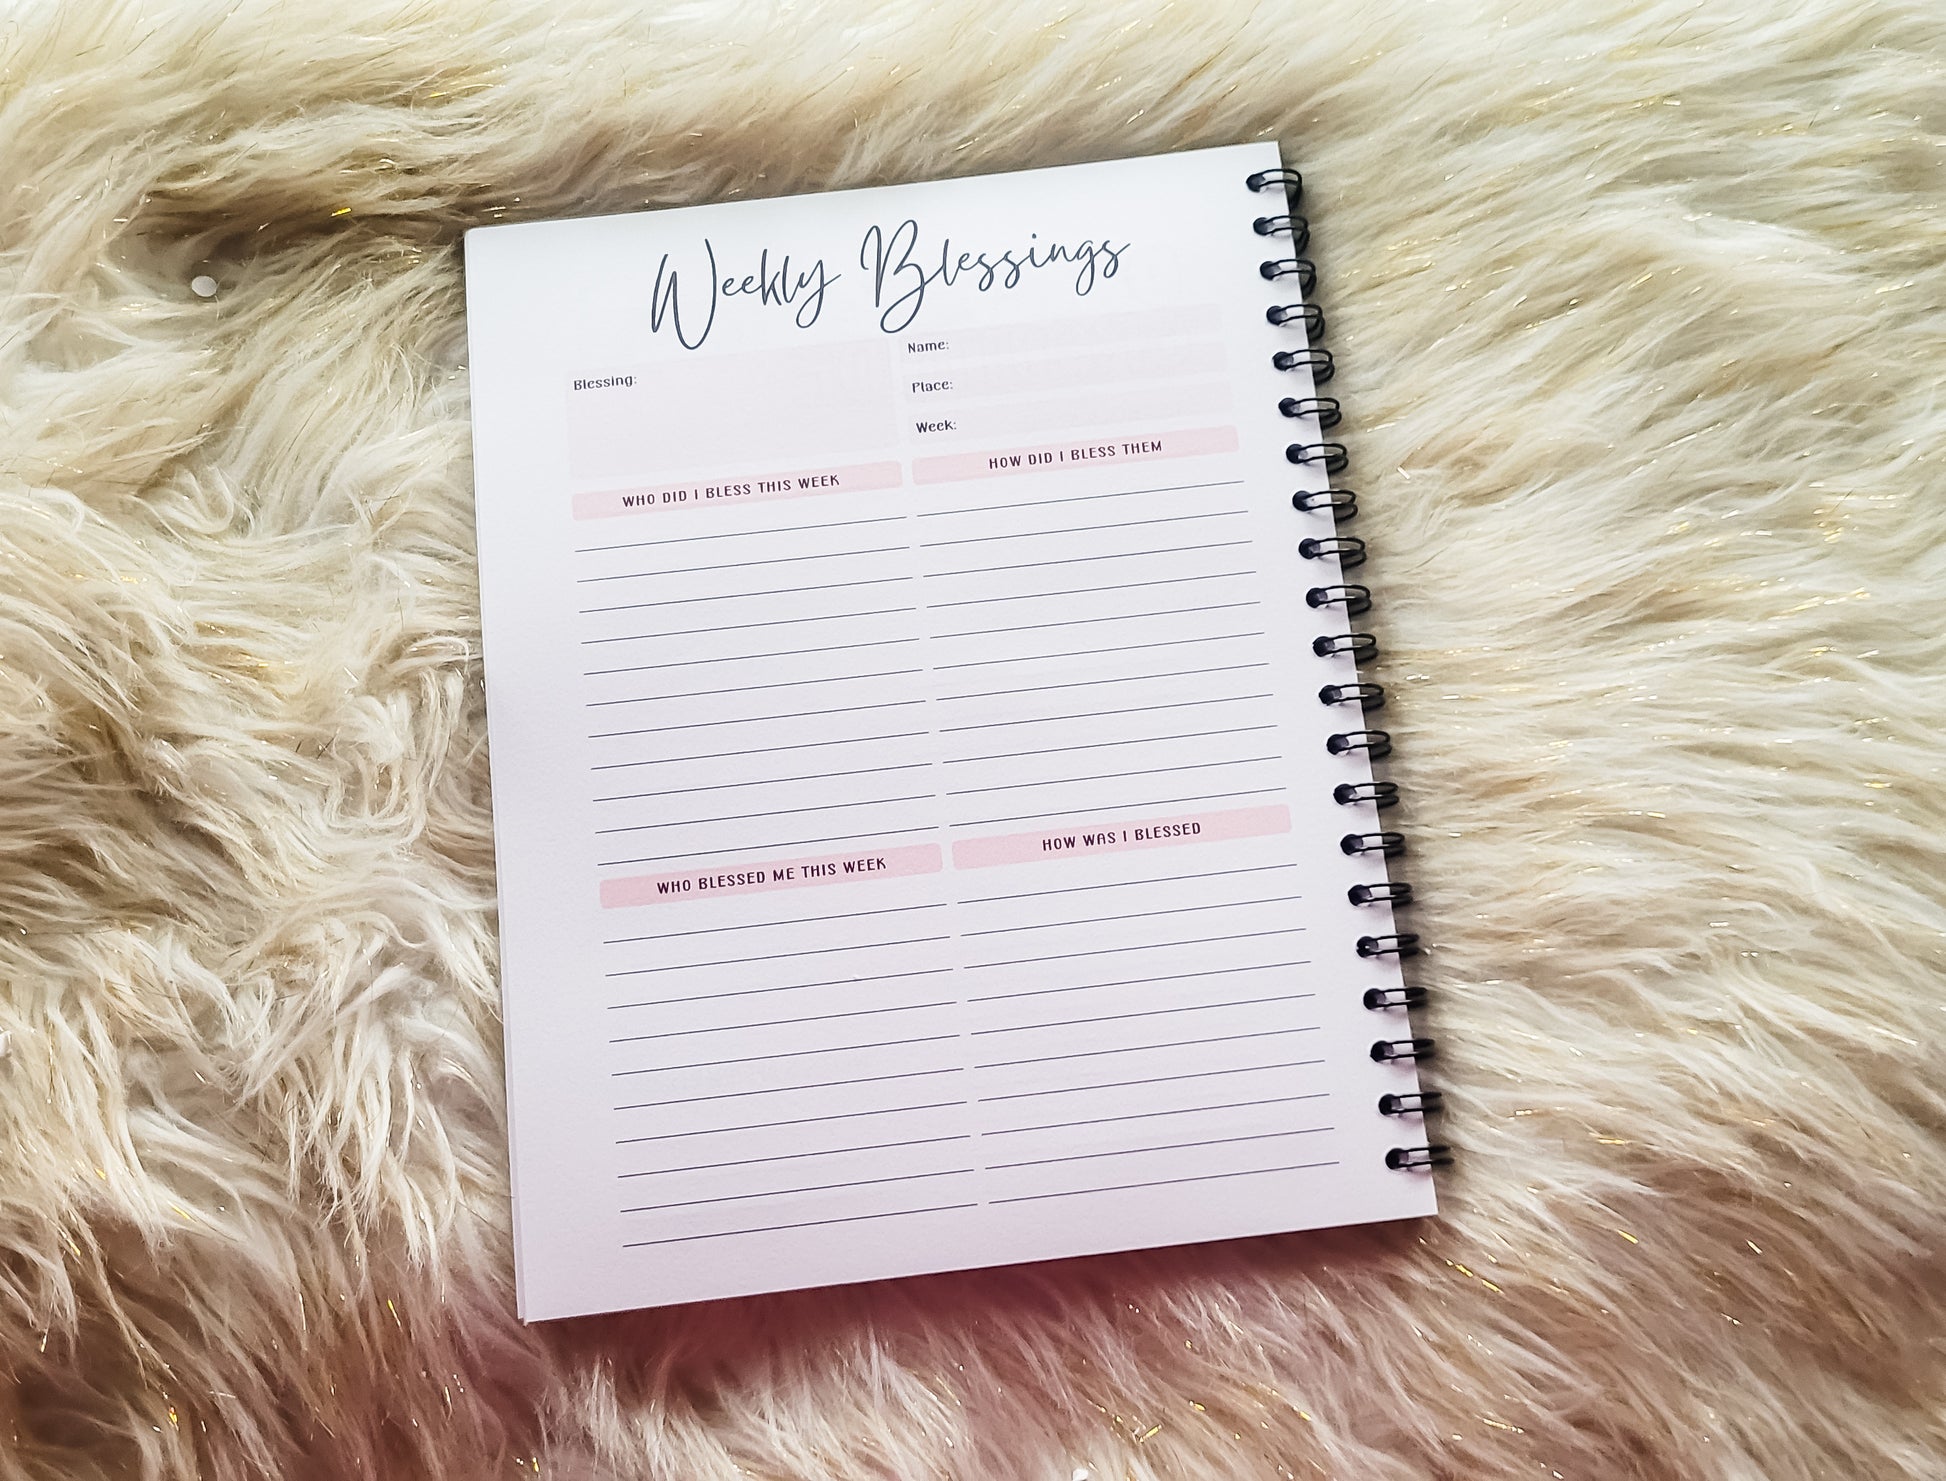 Weekly Blessings
Blessing:
Name:
Place:
Week:
WHO DID I BLESS THIS WEEK
HOW DID I BLESS THEM
WHO BLESSED ME THIS WEEK
HOW WAS I BLESSED